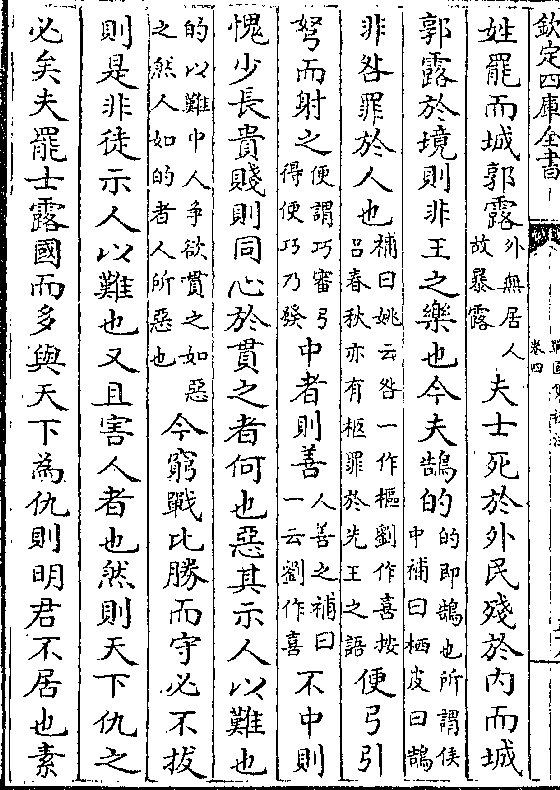 欽定四庫全書
卷四
姓罷而城郭露外無居人故暴露夫士死於外民殘於内而城
郭露於境則非王之樂也今夫鵠的的即鵠也所謂侯中補曰栖皮曰鵠
非咎罪於人也補曰姚云咎一作樞劉作喜按吕春秋亦有柩罪於先王之語便弓引
弩而射之便謂巧審弓得便巧乃發中者則善人善之補曰一云劉作喜不中則
愧少長貴賤則同心於貫之者何也惡其示人以難也
的以難中人爭欲貫之如惡之然人如的者人所惡也今窮戰比勝而守必不拔
則是非徒示人以難也又且害人者也然則天下仇之
必矣夫罷士露國而多與天下為仇則明君不居也素